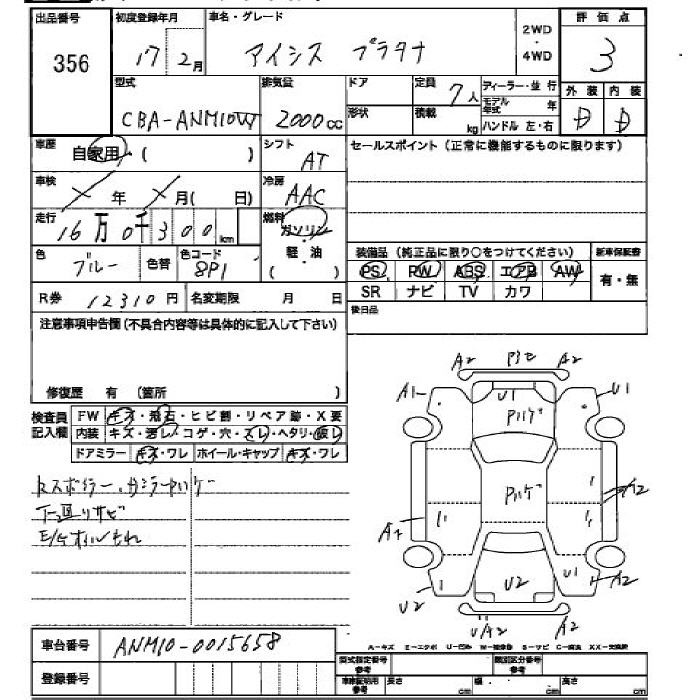 出品番号 初度登録年月 車名・グレード 2WD・4WD 評価点
356 17 2月 アイシス プラタナ 3
型式 排気量 ドア 定員 7人 ディーラー・並行 外装 内装
CBA-ANM10W 2000cc 形状 積載 kg モデル年式 年 ハンドル 左・右 D D
車歴 自家用・( ) シフト AT セールスポイント(正常に機能するものに限ります)
車検 年 月( 日) 冷房 AAC
走行 16万0千300km 燃料 ガソリン・軽・油 ( )
色 ブルー 色替 色コード 8P1 装備品(純正品に限り○をつけてください) 新車保証書
PS PW ABS エアB AW 有・無
R券 12310円 名変期限 月 日 SR ナビ TV カワ
注意事項申告欄(不具合内容等は具体的に記入して下さい) 後日品
修復歴 有 (箇所 )
検査員記入欄 FW キズ・飛石・ヒビ割・リペア跡・X要
内装 キズ・汚レ・コゲ・穴・スレ・ヘタリ・破レ
ドアミラー キズ・ワレ ホイール・キャップ キズ・ワレ
下廻りサビ
E/Gオイルもれ
A2 A2
A1 U1 U1
Pハゲ
Pハゲ A2
A2
U2 U2 U1 A2
U A2
車台番号 ANM10-0015658
登録番号
A-キズ E-エクボ U-凹み W-補修跡 S-サビ C-腐食 XX-交換済
型式指定番号 参考 類別区分番号 参考
車庫証明用 参考 長さ cm 幅 cm 高さ cm